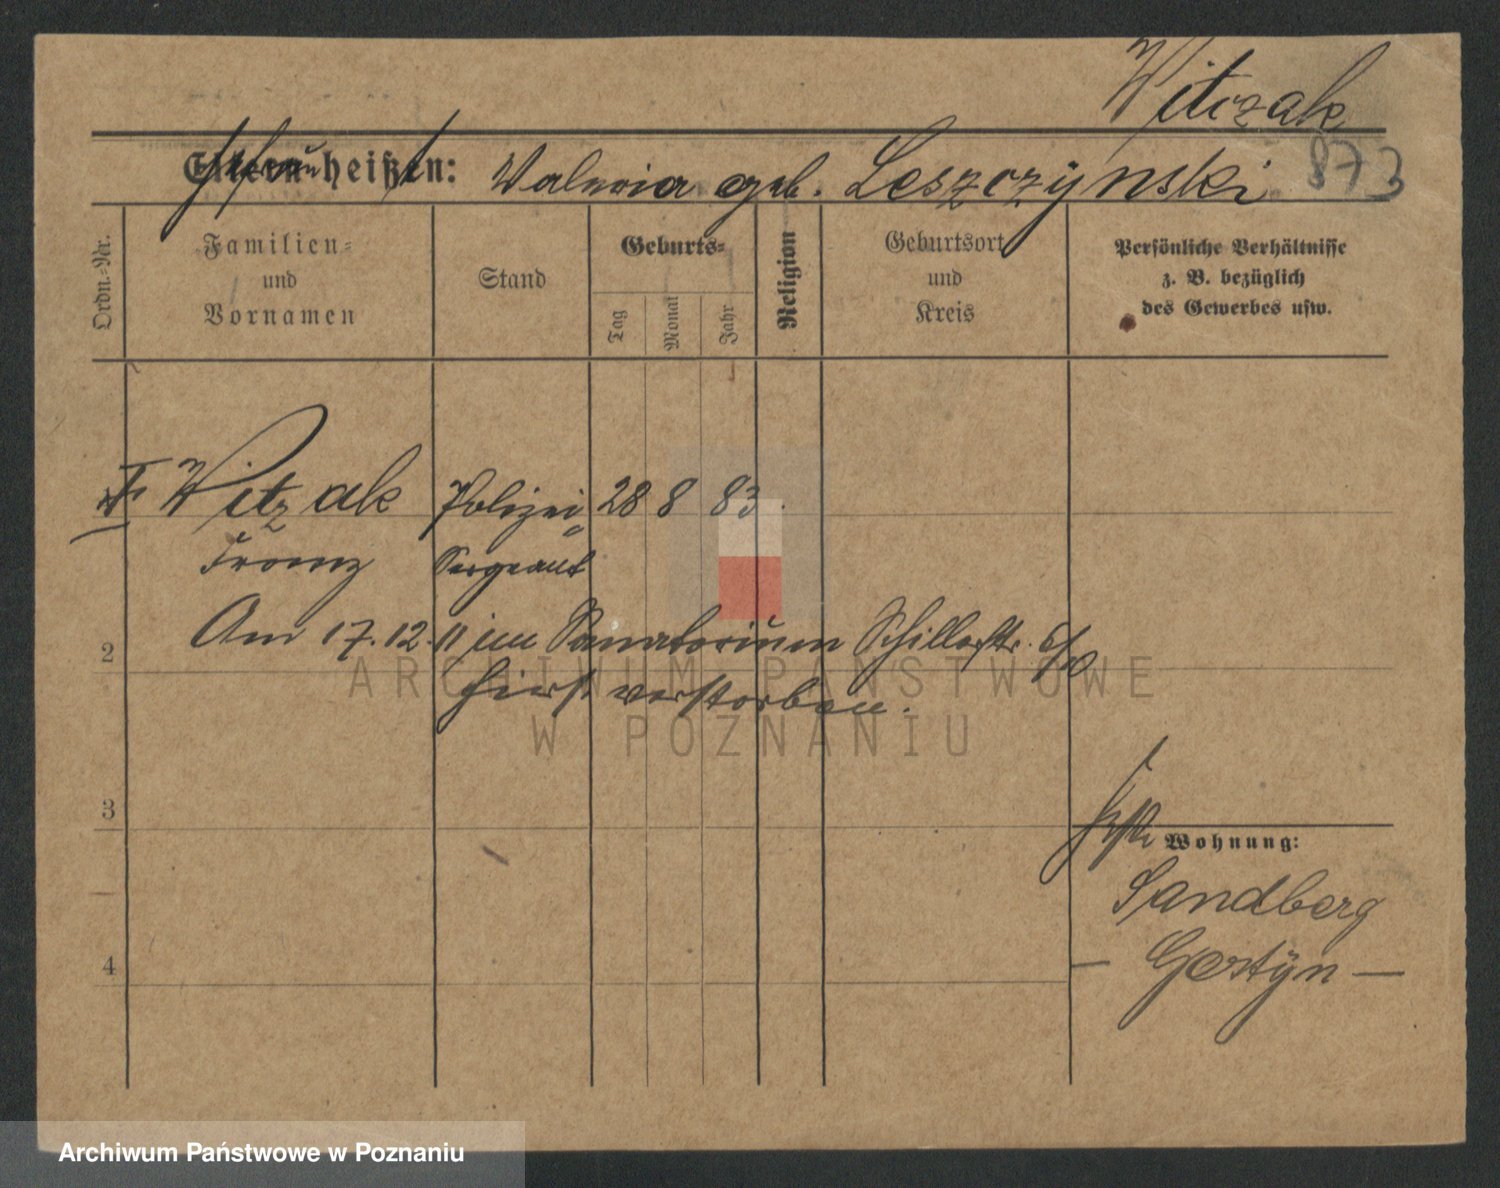 Witczak
Eltern heißen: Ehefrau Valeria geb. Leszczÿnski 873
Ordn.-Nr.
Familien-
und
Vornamen
Stand
Geburts-
Tag
Monat
Jahr
Religion
Geburtsort
und
Kreis
Persönliche Verhältnisse
z. B. bezüglich
des Gewerbes usw.
Witzak Polizei 28 8 83.
Franz Sergeant
2 Am 17.12.11 im Sanatorium Schillerstr.
hierst verstorben.
3
Wohnung:
Sandberg
4 — Gostÿn —
ARCHIWUM PAŃSTWOWE
W POZNANIU
Archiwum Państwowe w Poznaniu